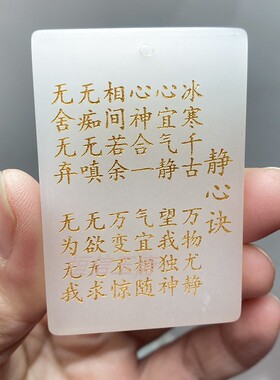 静心诀
冰寒千古
心宜气静
心神合一
相间若余
无痴无嗔
无舍无弃
万物尤静
望我独神
气宜相随
万变不惊
无欲无求
无为无我